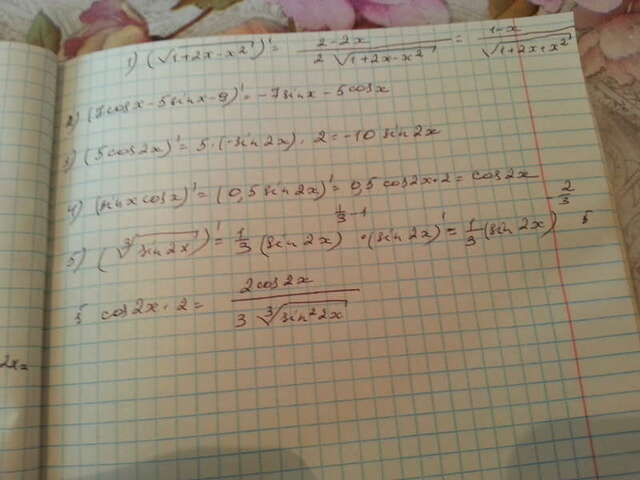 1) (√(1+2x-x²))' = (2-2x)/(2√(1+2x-x²)) = (1-x)/√(1+2x+x²)
2) (7cosx-5sinx-9)' = -7sinx-5cosx
3) (5cos2x)' = 5·(-sin2x)·2 = -10sin2x
4) (sinxcosx)' = (0,5sin2x)' = 0,5cos2x·2 = cos2x
5) (∛(sin2x))' = 1/3(sin2x)^(1/3-1)·(sin2x)' = 1/3(sin2x)^(-2/3)
cos2x·2 = 2cos2x/(3∛(sin²2x))
2x=